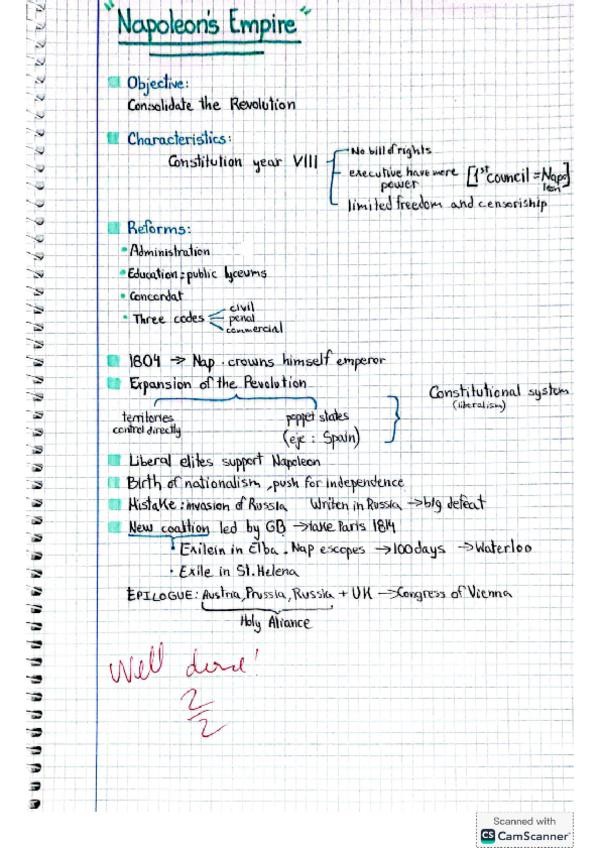 "Napoleon's Empire"
Objective:
Consolidate the Revolution
Characteristics:
Constitution year VIII
No bill of rights
executive have more power [1st Council = Napoleon]
limited freedom and censorship
Reforms:
• Administration
• Education: public lyceums
• Concordat
• Three codes
civil
penal
commercial
1804 → Nap. crowns himself emperor
Expansion of the Revolution
territories control directly
poppet states (eje: Spain)
Constitutional system (liberalism)
Liberal elites support Napoleon
Birth of nationalism, push for independence
Mistake: invasion of Russia Writen in Russia → big defeat
New coaltion led by GB → take Paris 1814
Exilein in Elba. Nap escopes → 100 days → Waterloo
• Exile in St. Helena
EPILOGUE: Austria, Prussia, Russia + UK → Congress of Vienna
Holy Aliance
Well done!
2/2
Scanned with
CS CamScanner